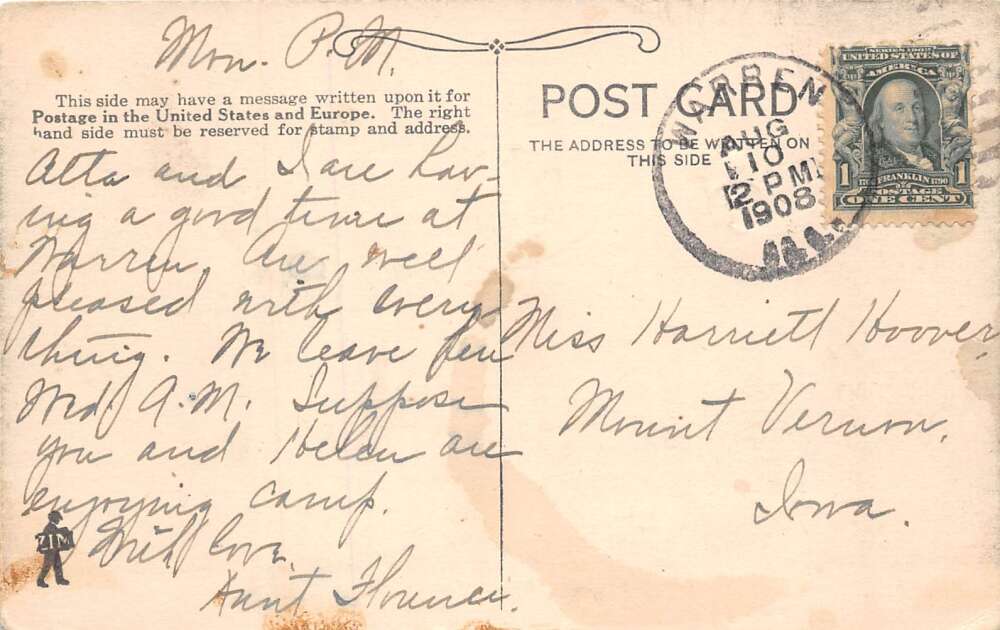 Mon. P.M.
This side may have a message written upon it for
Postage in the United States and Europe. The right
hand side must be reserved for stamp and address.
Atta and I are hav-
ing a good time at
Warren, are well
pleased with every
thing. We leave here
Wed. A.M. Suppose
you and Helen are
enjoying camp.
With love.
Aunt Florence.
ZIM
POST CARD
THE ADDRESS TO BE WRITTEN ON
THIS SIDE
WARREN
AUG
10
12 PM
1908
ILL.
SERIES 1902
UNITED STATES OF
AMERICA
1706 FRANKLIN 1790
POSTAGE
1 ONE CENT 1
Miss Harriett Hoover,
Mount Vernon,
Iowa.